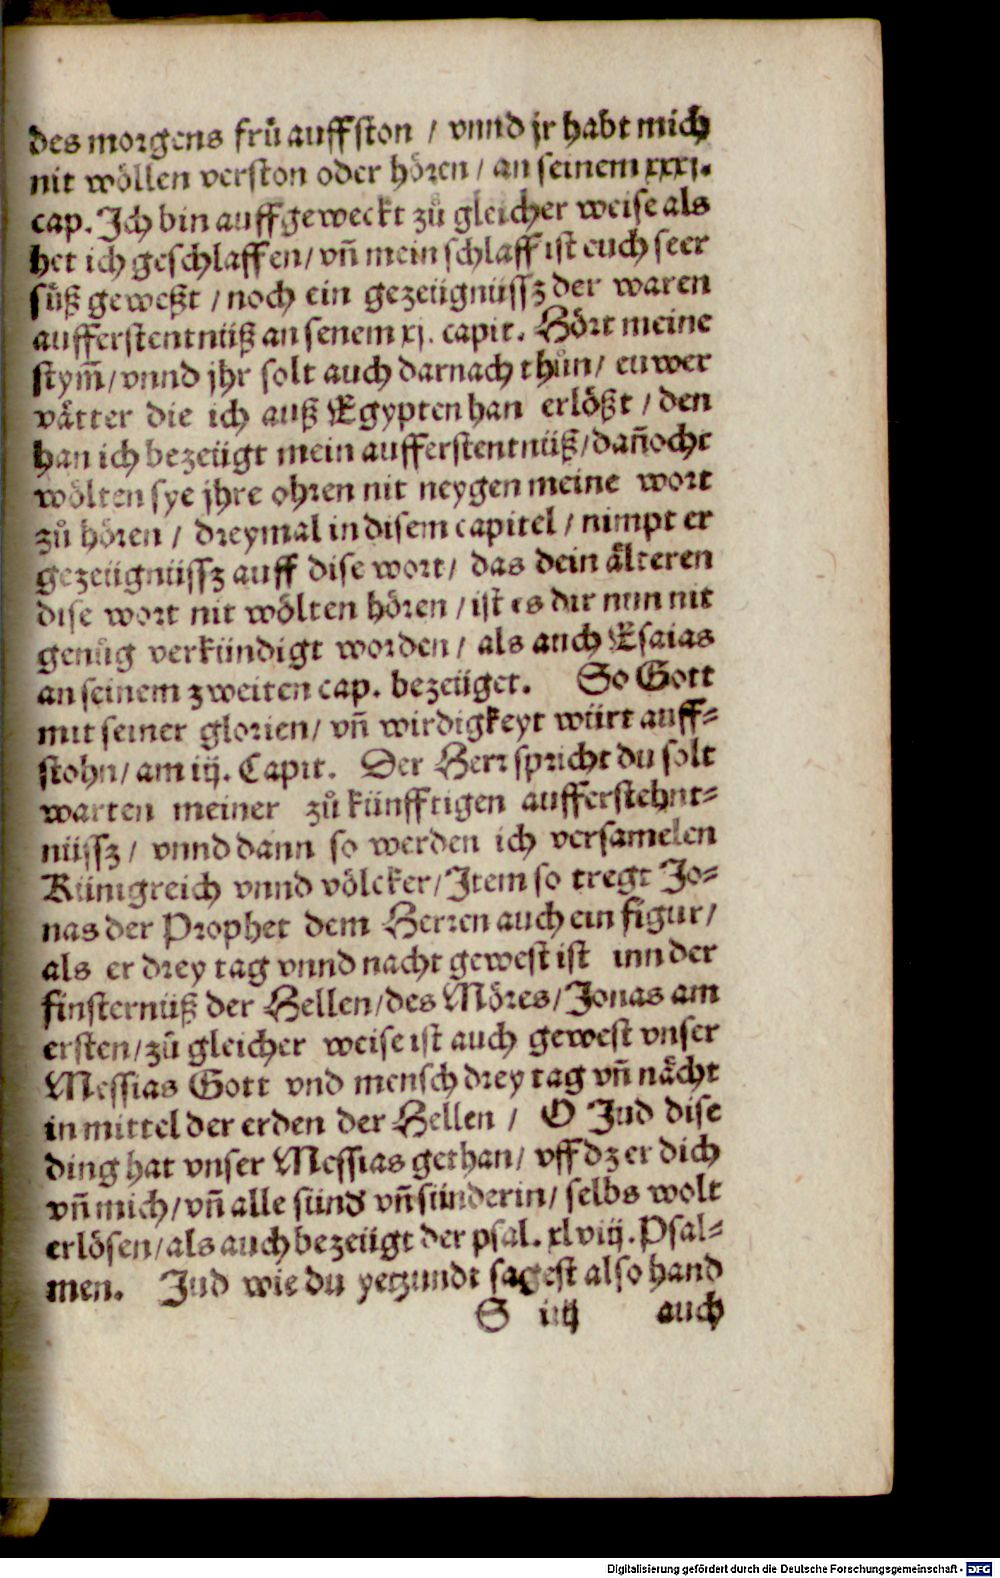 des morgens frů auffston / vnnd jr habt mich
nit wöllen verston oder hören / an seinem xxxj.
cap. Ich bin auffgeweckt zů gleicher weise als
het ich geschlaffen / vn̄ mein schlaff ist euch seer
sůß geweßt / noch ein gezeügnüssz der waren
aufferstentnüß an senem xj. capit. Hört meine
stym̄ / vnnd jhr solt auch darnach thůn / euwer
vätter die ich auß Egypten han erlößt / den
han ich bezeügt mein aufferstentnüß / dan̄ocht
wölten sye jhre ohren nit neygen meine wort
zů hören / dreymal in disem capitel / nimpt er
gezeügnüssz auff dise wort / das dein älteren
dise wort nit wölten hören / ist es dir nun nit
genůg verkündigt worden / als auch Esaias
an seinem zweiten cap. bezeüget. So Gott
mit seiner glorien / vn̄ wirdigkeyt würt auff-
stohn / am iij. Capit. Der Herr spricht du solt
warten meiner zů künfftigen aufferstehnt-
nüssz / vnnd dann so werden ich versamelen
Künigreich vnnd völcker / Item so tregt Jo-
nas der Prophet dem Herren auch ein figur /
als er drey tag vnnd nacht gewest ist inn der
finsternüß der Hellen / des Möres / Jonas am
ersten / zů gleicher weise ist auch gewest vnser
Messias Gott vnd mensch drey tag vn̄ nächt
in mittel der erden der Hellen / O Jud dise
ding hat vnser Messias gethan / vff dz er dich
vn̄ mich / vn̄ alle sünd vn̄ sünderin / selbs wolt
erlösen / als auch bezeügt der psal. xlviij. Psal-
men. Jud wie du yetzundt sagest also hand
S iiij auch
Digitalisierung gefördert durch die Deutsche Forschungsgemeinschaft - DFG